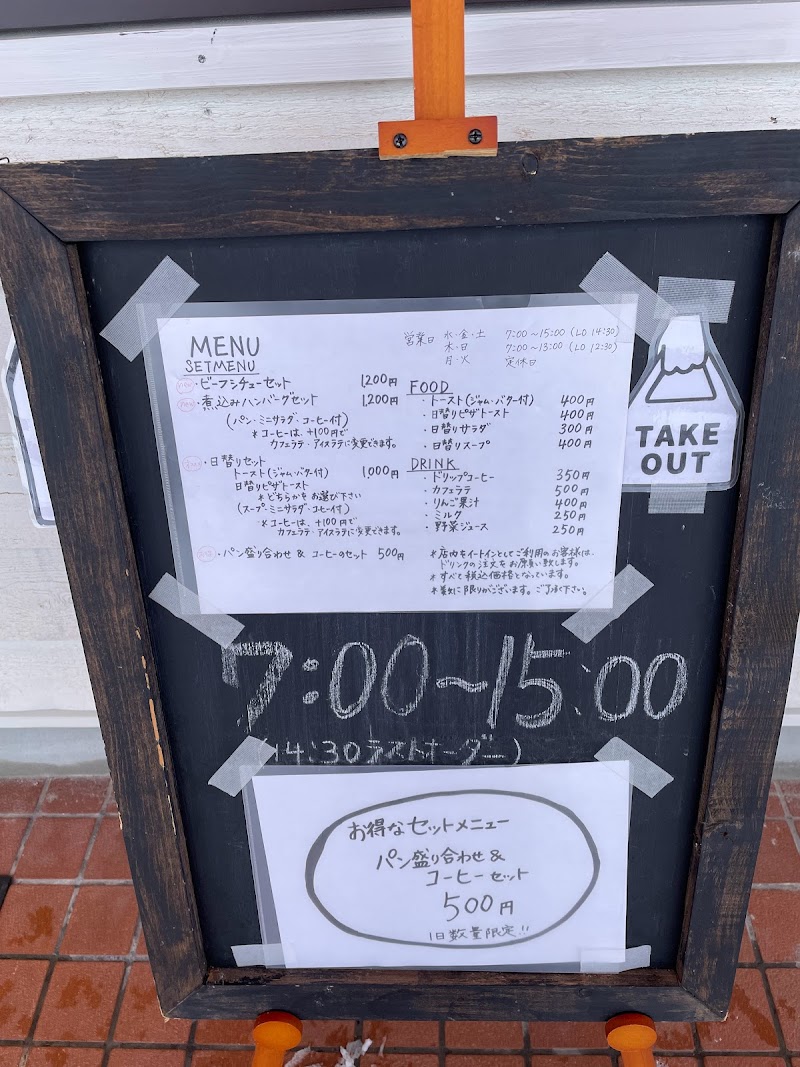 MENU
SETMENU
new・ビーフシチューセット 1,200円
new・煮込みハンバーグセット 1,200円
(パン・ミニサラダ・コーヒー付)
*コーヒーは、+100円で
カフェラテ・アイスラテに変更できます。
・日替りセット 1,000円
トースト(ジャム・バター付)
日替りピザトースト
*どちらかをお選び下さい
(スープ・ミニサラダ・コーヒー付)
*コーヒーは、+100円で
カフェラテ・アイスラテに変更できます。
・パン盛り合わせ & コーヒーのセット 500円
営業日 水・金・土 7:00〜15:00 (LO 14:30)
木・日 7:00〜13:00 (LO 12:30)
月・火 定休日
FOOD
・トースト(ジャム・バター付) 400円
・日替りピザトースト 400円
・日替りサラダ 300円
・日替りスープ 400円
DRINK
・ドリップコーヒー 350円
・カフェラテ 500円
・りんご果汁 400円
・ミルク 250円
・野菜ジュース 250円
*店内をイートインとしてご利用のお客様は、
ドリンクの注文をお願い致します。
*すべて税込価格となっています。
*数に限りがございます。ご了承下さい。
TAKE
OUT
7:00〜15:00
(14:30ラストオーダー)
お得なセットメニュー
パン盛り合わせ &
コーヒーセット
500円
1日数量限定!!